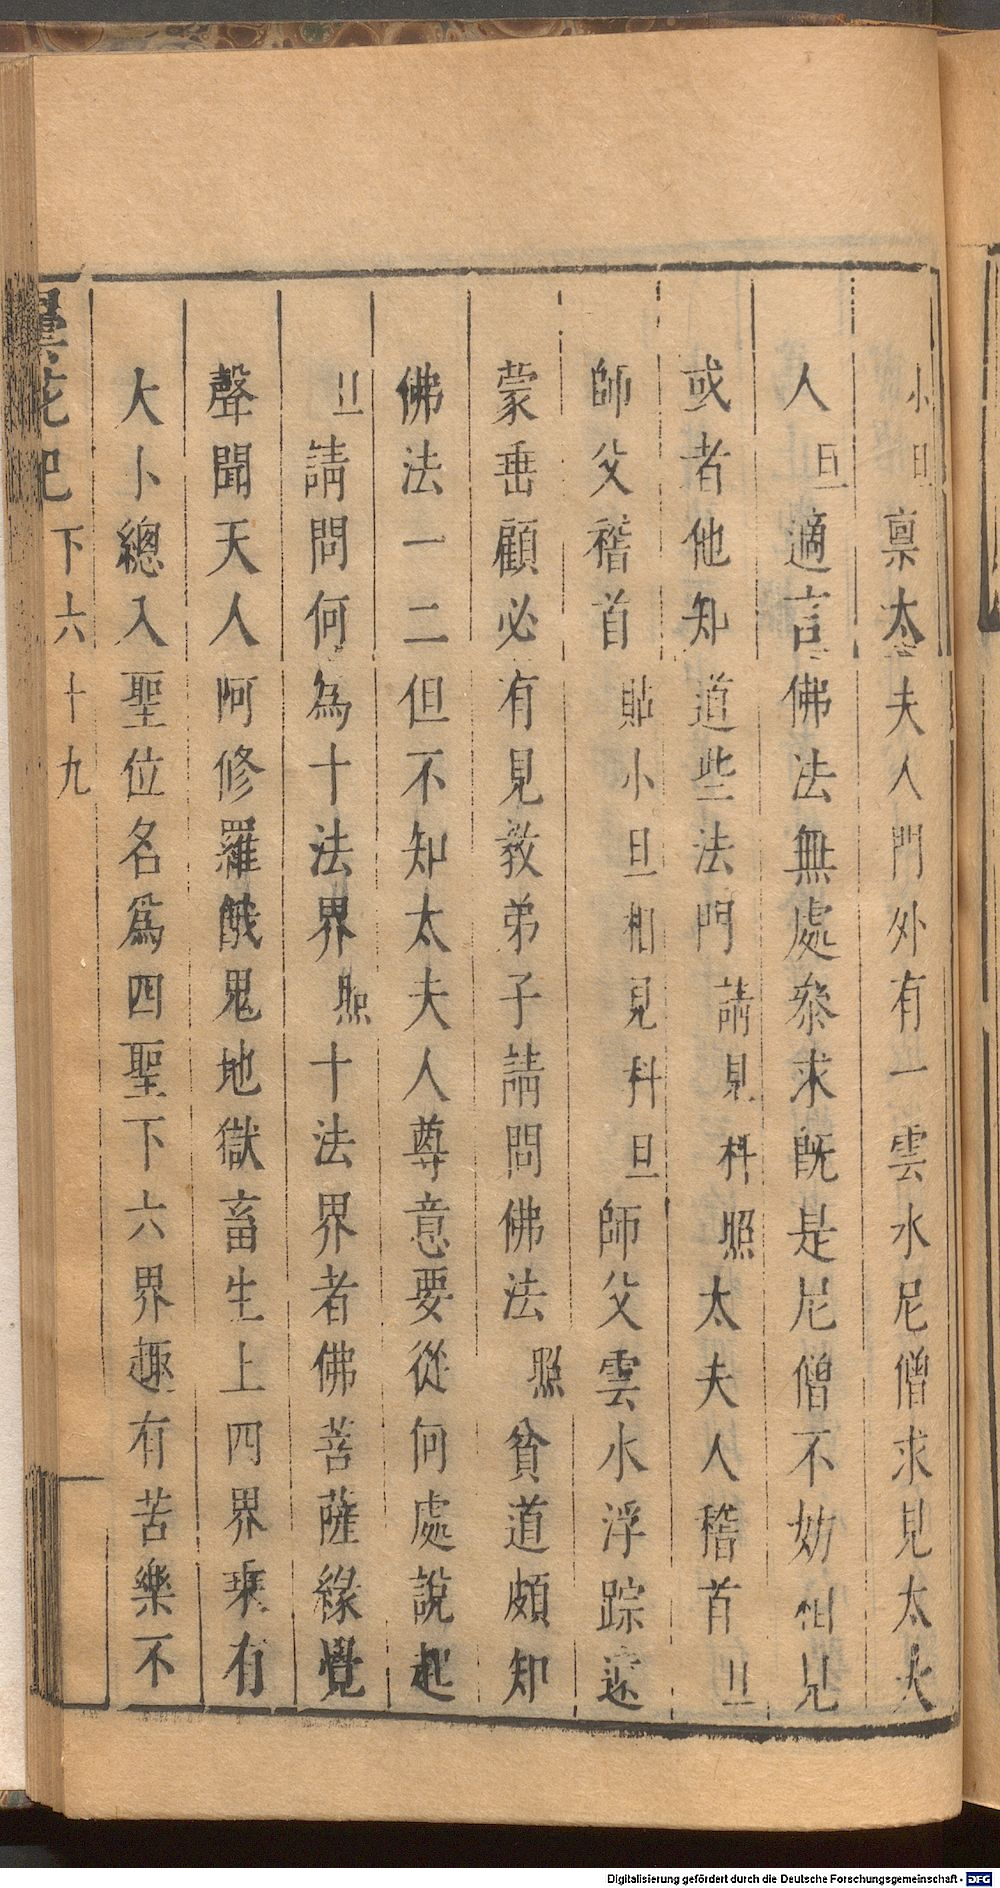 小旦稟太夫人門外有一雲水尼僧求見太夫
人旦適言佛法無處叅求既是尼僧不妨相見
或者他知道些法門請見科照太夫人稽首旦
師父稽首貼小旦相見科旦師父雲水浮踪遠
蒙垂顧必有見教弟子請問佛法照貧道頗知
佛法一二但不知太夫人尊意要從何處說起
旦請問何為十法界照十法界者佛菩薩緣覺
聲聞天人阿修羅餓鬼地獄畜生上四界乘有
大小總入聖位名爲四聖下六界趣有苦樂不
曇花記 下六十九
Digitalisierung gefördert durch die Deutsche Forschungsgemeinschaft - DFG